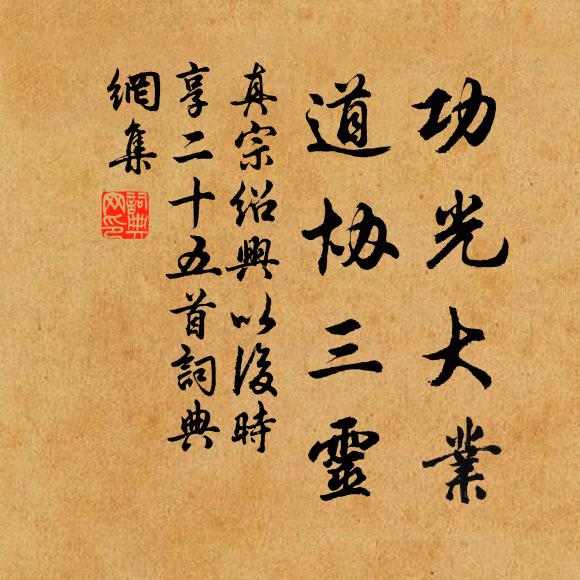 功光大業
道协三靈
真宗绍興以後時
享二十五首詞典
網集
詞典
网印